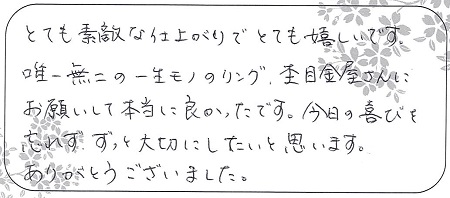 とても素敵な仕上がりでとても嬉しいです。
唯一無二の一生モノのリング、杢目金屋さんに
お願いして本当に良かったです。今日の喜びを
忘れず、ずっと大切にしたいと思います。
ありがとうございました。